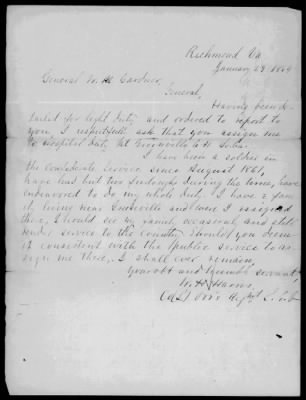 Richmond Va
January 29 1864
General W. M. Gardner,
General,
Having been de-
tailed for light duty and ordered to report to
you, I respectfully ask that you assign me
to Hospital duty at Greenville
I have been a soldier in
the Confederate service since August 1861,
have had but two furloughs during the time, have
endeavored to do my whole duty. I have a fam-
ily living near Greenville and were I assigned
there, I should see my family occasionally and still
render service to the country. Should you deem
it consistent with the public service to as-
sign me there, I shall ever remain,
your obt and humble servant
W. H. Harris
Regt